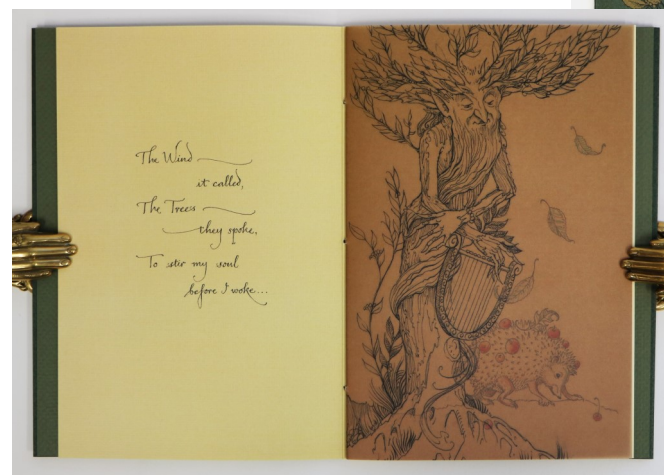 The Wind
it called,
The Trees
they spoke,
To stir my soul
before I woke...